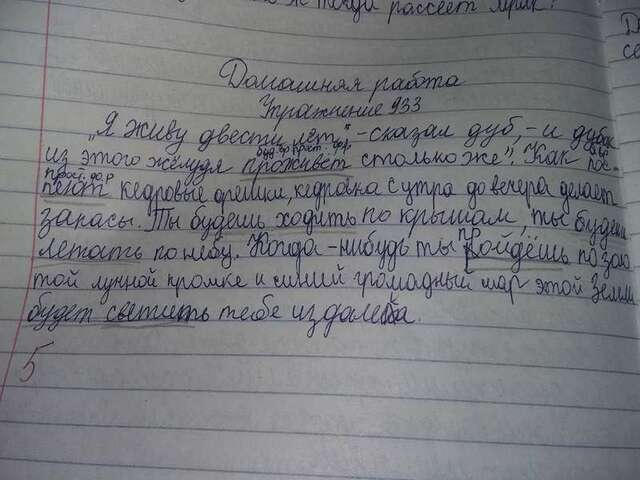 ж тогда рассеет мрак?
Домашняя работа
Упражнение 933
„Я живу двести лет" - сказал дуб, - и дубок
из этого жёлудя проживёт столько же". Как пос-
пеют кедровые орешки, кедровка с утра до вечера делает
запасы. Ты будешь ходить по крышам, ты будешь
летать по небу. Когда-нибудь ты пройдёшь по золо
той лунной кромке и синий громадный шар этой Земли
будет светить тебе издалека.
5